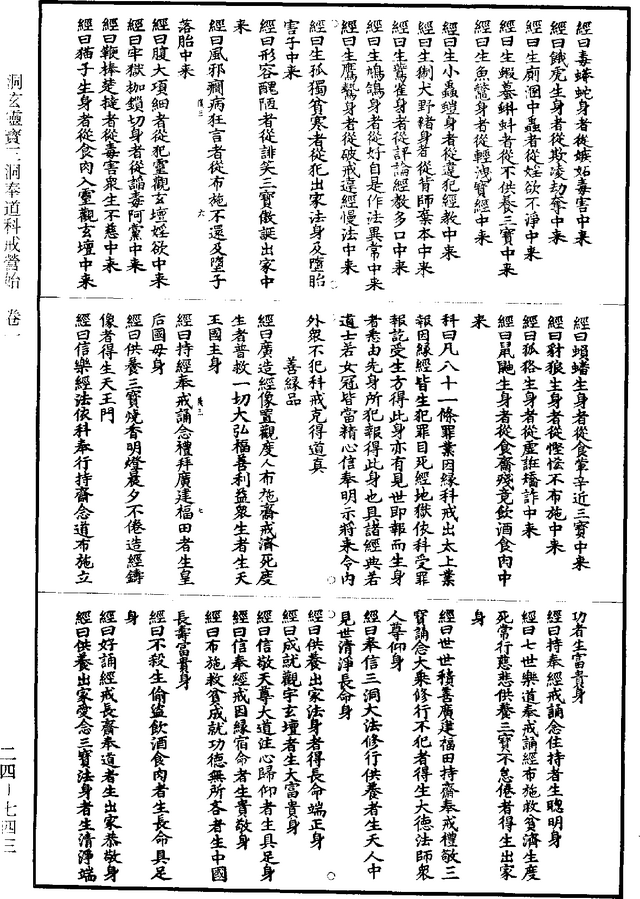 經曰毒蟒蛇身者從嫉妬毒害中来
經曰餓虎生身者從欺凌劫奪中来
經曰生廁溷中蟲者從婬欲不淨中来
經曰生蝦蟇蝌蚪者從不供養三寶中来
經曰生魚鱉身者從輕洩寶經中来
經曰生小蟲螘身者從違犯經教中来
經曰生猘犬野豬身者從背師棄本中来
經曰生鸞雀身者從評論經教多口中来
經曰生鵂鶹身者從好自是作法異常中来
經曰生鷹鷙身者從破戒違經慢法中来
經曰生孤獨貧寒者從犯出家法身及墮胎
害子中来
經曰形容醜陋者從誹笑三寶傲誕出家中
来
經曰風邪癲病狂言者從布施不還及墮子
落胎中来
經曰腹大項細者從犯靈觀玄壇婬欲中来
經曰牢獄枷鎖切身者從謟毒阿黨中来
經曰鞭棒楚撻者從毒害衆生不慈中来
經曰猫子生身者從食肉入靈觀玄壇中来
洞玄靈寶三洞奉道科戒營始 卷一
經曰蝜蟠生身者從食葷辛近三寶中来
經曰豺狼生身者從慳悋不布施中来
經曰狐狢生身者從虛誑矯詐中来
經曰鼠鼬生身者從食齋殘竟飲酒食肉中
来
科曰凡八十一條罪業因緣科戒出太上業
報因緣經皆生犯罪目死經地獄依科受罪
報訖受生方得此身亦有見世即報而生身
者悉由先身所犯報得此身也具諸經典若
道士若女冠皆當精心信奉明示將来令内
外衆不犯科戒克得道真
善緣品
經曰廣造經像置觀度人布施齋戒濟死度
生者普救一切大弘福善利益衆生者生天
王國主身
經曰持經奉戒誦念禮拜廣建福田者生皇
后國母身
經曰供養三寶燒香明燈晨夕不倦造經鑄
像者得生天王門
經曰信樂經法依科奉行持齋念道布施立
功者生富貴身
經曰持奉經戒誦念住持者生聰明身
經曰七世樂道奉戒誦經布施救貧濟生度
死常行慈悲供養三寶不怠倦者得生出家
身
經曰世世積善廣建福田持齋奉戒禮敬三
寶誦念大乘修行不犯者得生大德法師衆
人尊仰身
經曰奉信三洞大法修行供養者生天人中
見世清淨長命身
經曰供養出家法身者得長命端正身
經曰成就觀宇玄壇者生大富貴身
經曰信敬天尊大道注心歸仰者生具足身
經曰信奉經戒因緣宿命者生貴敬身
經曰布施救貧成就功德無所吝者生中國
長壽富貴身
經曰不殺生偷盜飲酒食肉者生長命具足
身
經曰好誦經戒長齋奉道者生出家恭敬身
經曰供養出家愛念三寶法身者生清淨端
二四－七四三